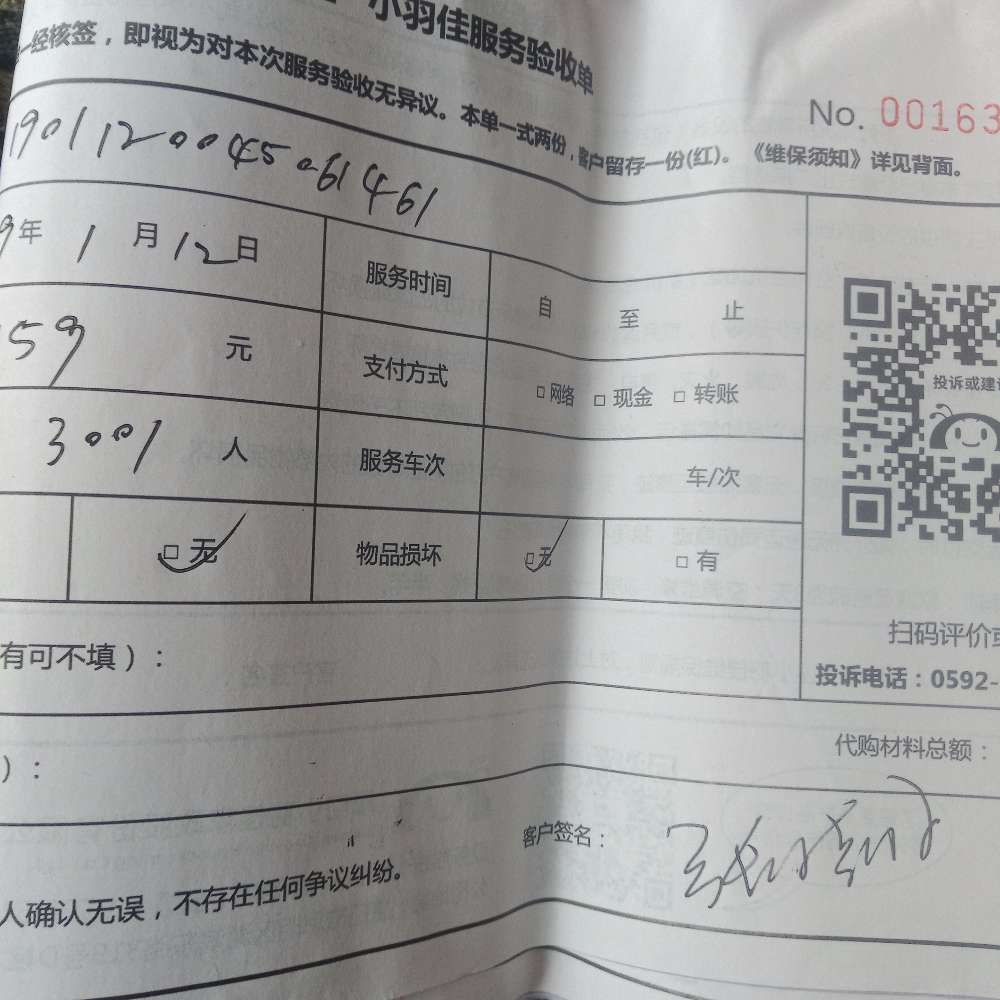 小羽佳服务验收单
一经核签，即视为对本次服务验收无异议。本单一式两份，客户留存一份(红)。《维保须知》详见背面。
No. 00163
1901120045061461
9年 1月12日 服务时间 自 至 止
59 元 支付方式 □网络 □现金 □转账
3001 人 服务车次 车/次
□无 物品损坏 □无 □有
投诉或建
扫码评价
投诉电话：0592-
有可不填）：
代购材料总额：
）：
客户签名：
人确认无误，不存在任何争议纠纷。